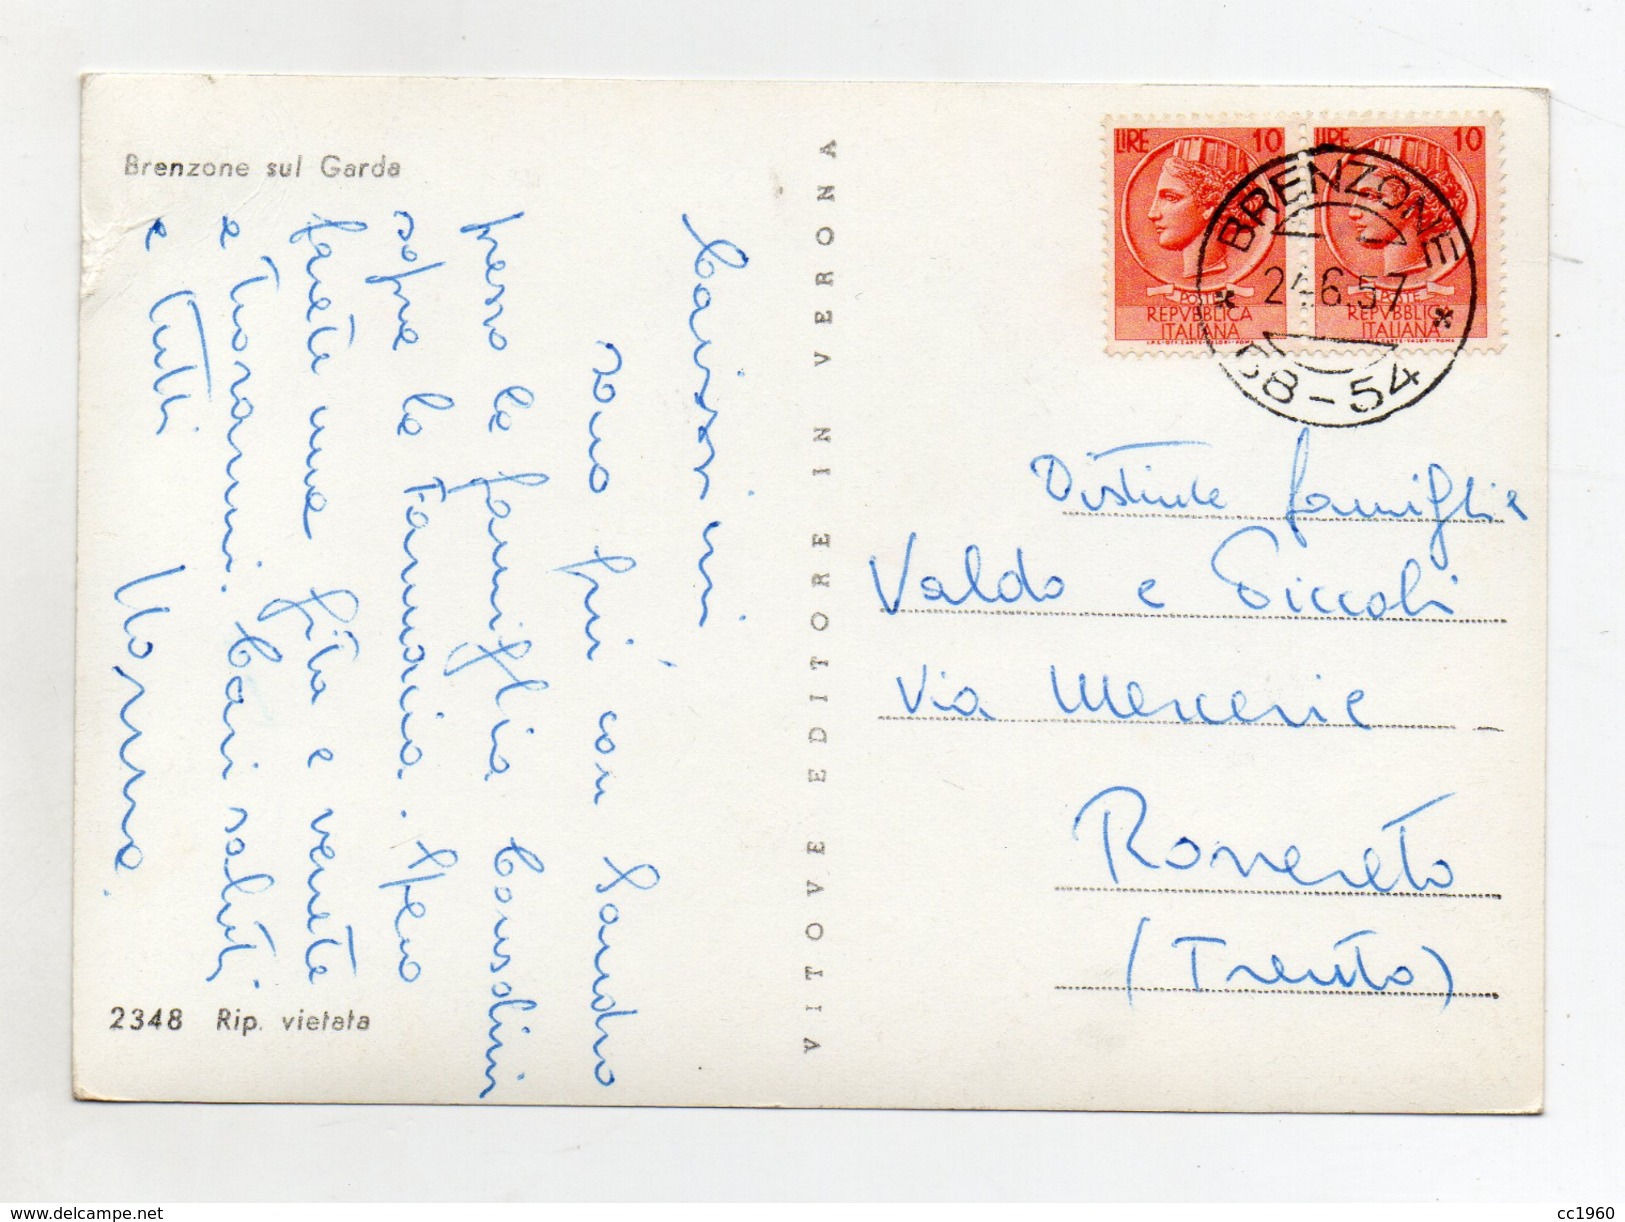 Brenzone sul Garda
Carissimi
sono qui con Sandro
presso la famiglia Consolini
sopra la Farmacia. Spero
farete una gita e verrete
a trovarmi. Cari saluti
e tutti
2348 Rip. vietata
VITOVE EDITORE IN VERONA
LIRE 10
POSTE
REPVBBLICA
ITALIANA
LIRE 10
POSTE
REPVBBLICA
ITALIANA
BRENZONE
24.6.57
58-54
Distinte famiglie
Valdo e Piccoli
Via Mercerie
Rovereto
(Trento)
www.delcampe.net
cc1960